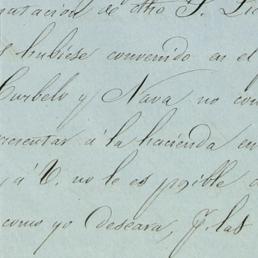 de dho S. Lic
hubiese convenido en el
Curbelo y Nava no con
presentar á la hacienda en
, á V. no le es posible
como yo deseara, p. las